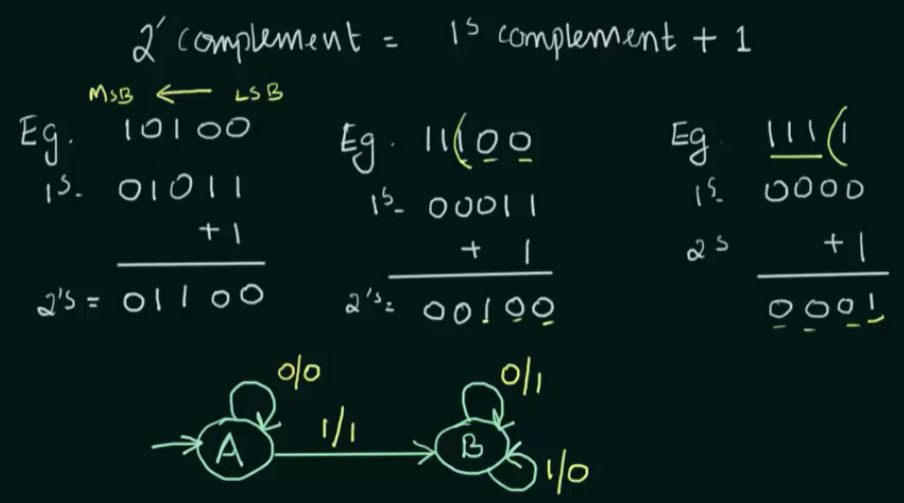 2' complement = 1s complement + 1
MSB ← LSB
Eg. 10100
1s- 01011
+1
2's = 01100
Eg. 11(100
1s- 00011
+ 1
2's= 00100
Eg 111(1
1s- 0000
2s +1
0001
0/0
0/1
1/1
A
B
1/0